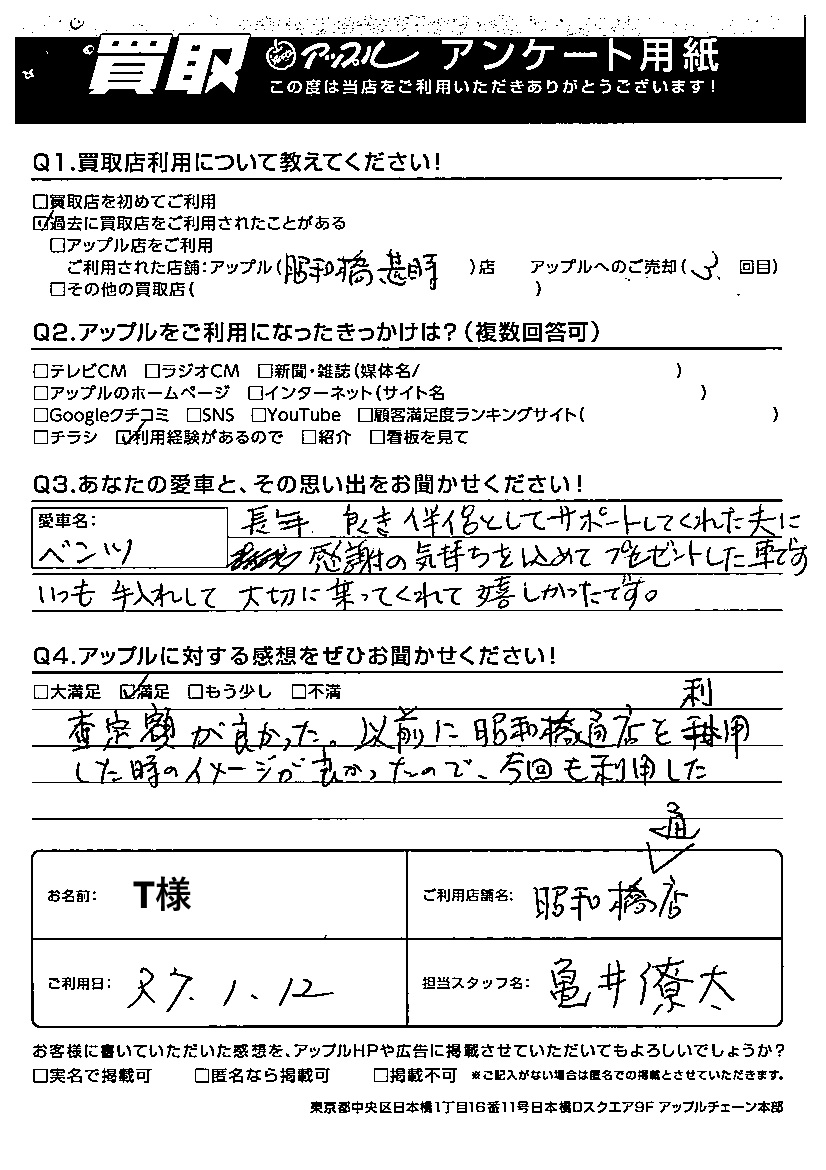 買取 アップル アンケート用紙
この度は当店をご利用いただきありがとうございます!
Q1.買取店利用について教えてください!
□買取店を初めてご利用
☑過去に買取店をご利用されたことがある
□アップル店をご利用
ご利用された店舗:アップル(昭和橋 )店 アップルへのご売却(3 回目)
□その他の買取店( )
Q2.アップルをご利用になったきっかけは?(複数回答可)
□テレビCM □ラジオCM □新聞・雑誌(媒体名/ )
□アップルのホームページ □インターネット(サイト名 )
□Googleクチコミ □SNS □YouTube □顧客満足度ランキングサイト( )
□チラシ ☑利用経験があるので □紹介 □看板を見て
Q3.あなたの愛車と、その思い出をお聞かせください!
愛車名:
ベンツ
長年 良き伴侶としてサポートしてくれた夫に
感謝の気持ちを込めてプレゼントした車です
いつも手入れして大切に乗ってくれて嬉しかったです。
Q4.アップルに対する感想をぜひお聞かせください!
□大満足 ☑満足 □もう少し □不満
利
査定額が良かった。以前に昭和橋通店を利用
した時のイメージが良かったので、今回も利用した
通
お名前: T様 ご利用店舗名: 昭和橋店
ご利用日: R7.1.12 担当スタッフ名: 亀井僚太
お客様に書いていただいた感想を、アップルHPや広告に掲載させていただいてもよろしいでしょうか?
□実名で掲載可 □匿名なら掲載可 □掲載不可 ※ご記入がない場合は匿名での掲載とさせていただきます。
東京都中央区日本橋1丁目16番11号日本橋Dスクエア9F アップルチェーン本部